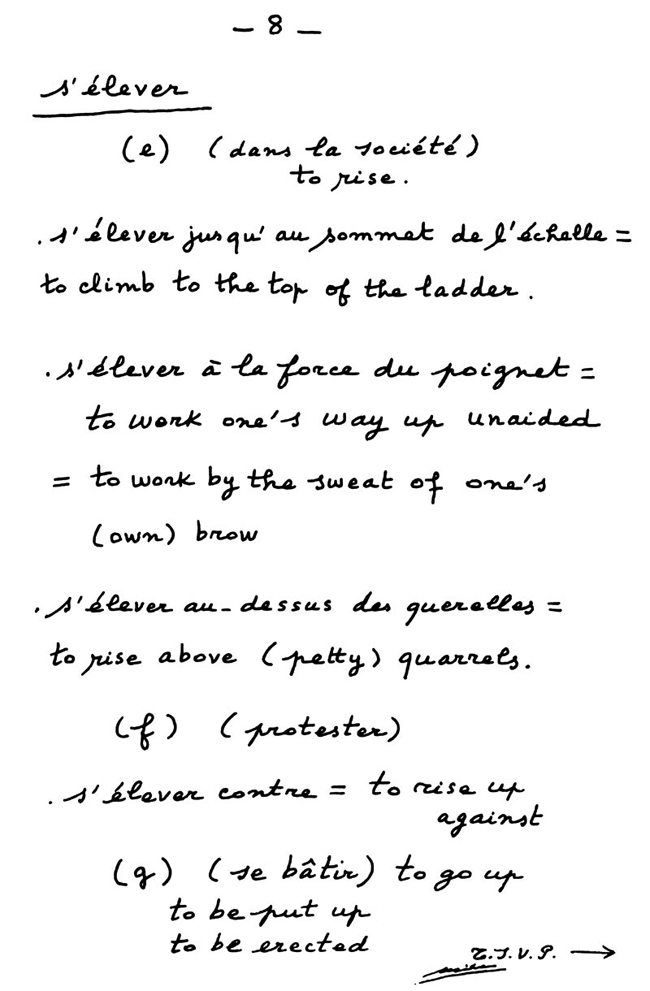 – 8 –
s'élever
(e) (dans la société)
to rise.
. s'élever jusqu'au sommet de l'échelle =
to climb to the top of the ladder.
. s'élever à la force du poignet =
to work one's way up unaided
= to work by the sweat of one's
(own) brow
. s'élever au-dessus des querelles =
to rise above (petty) quarrels.
(f) (protester)
. s'élever contre = to rise up
against
(g) (se bâtir) to go up
to be put up
to be erected
T.S.V.P. →